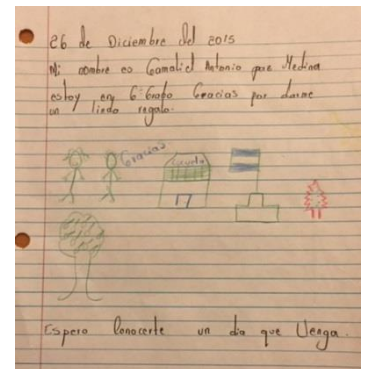 26 de Diciembre del 2015
Mi nombre es Gamaliel Antonio paz Medina
estoy en 6: Grado Gracias por darme
un lindo regalo.
Gracias
Escuela
Espero Conocerte un dia que Venga.